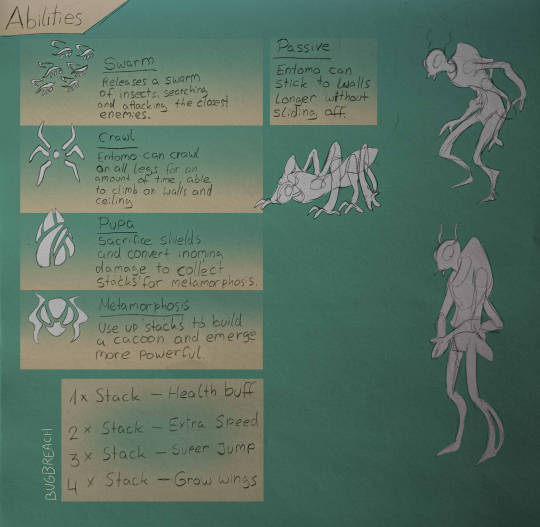 Abilities
Swarm
Releases a swarm
of insects, searching
and attacking the closest
enemies.
Crawl
Entomo can crawl
on all legs for an
amount of time, able
to climb on walls and
ceiling
Pupa
Sacrifice shields
and convert incoming
damage to collect
stacks for metamorphosis.
Metamorphosis
Use up stacks to build
a cacoon and emerge
more powerful.
1x Stack – Health buff
2x Stack – Extra Speed
3x Stack – Super Jump
4x Stack – Grow wings
BUGBREACH
Passive
Entomo can
stick to walls
longer without
sliding off.